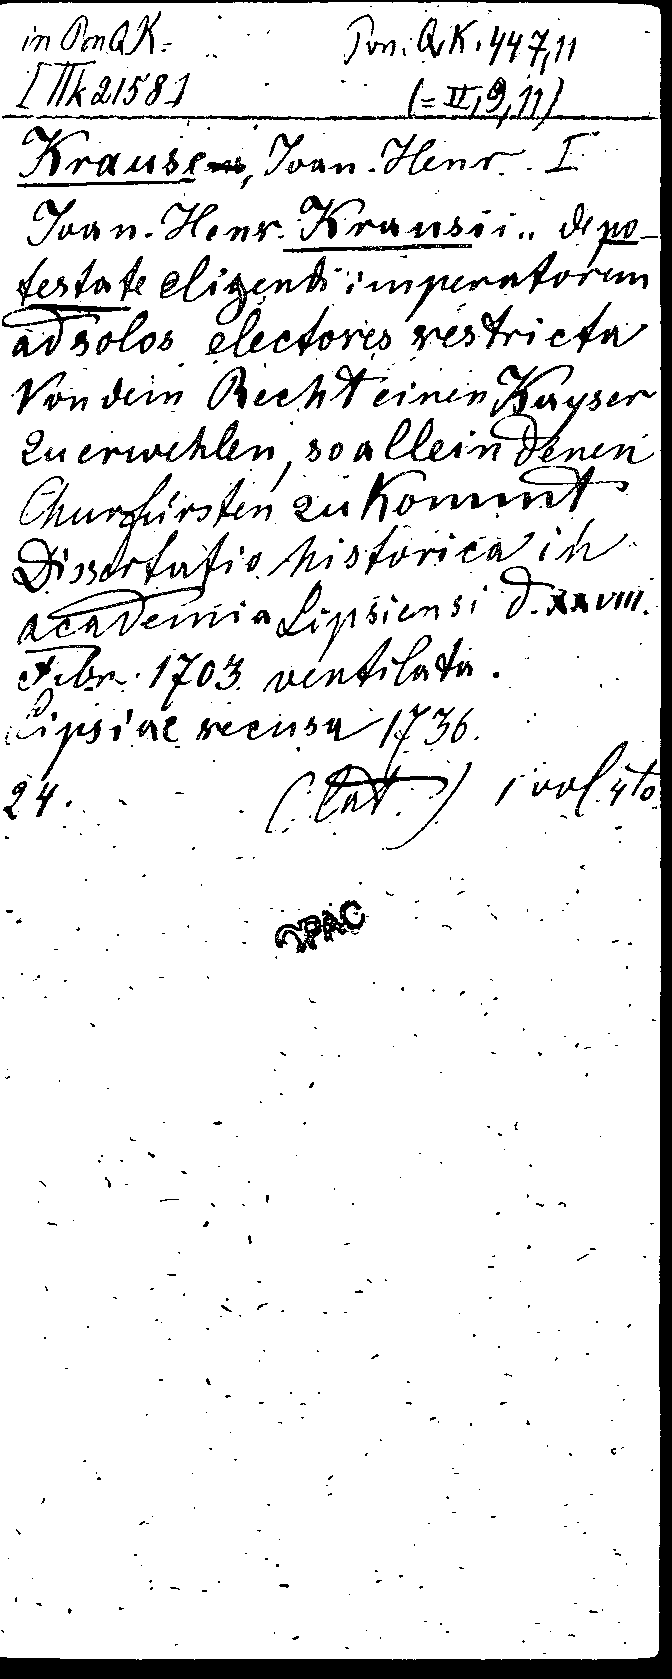 in Pon QK. Pon. QK. 447,11
[IIk 2158] (= II, 9, 11)
Krause, Joan. Henr. I
Joan. Henr. Krausii.. de po-
testate eligendi imperatorem
ad solos electores restricta
Von dem Recht einen Kayser
zu erwehlen, so allein denen
Churfürsten zu kommt
Dissertatio historica in
academia Lipsiensi d. XXVIII.
Febr. 1703 ventilata.
Lipsiae recusa 1736.
24. (lat.) 1 vol. 4to
OPAC